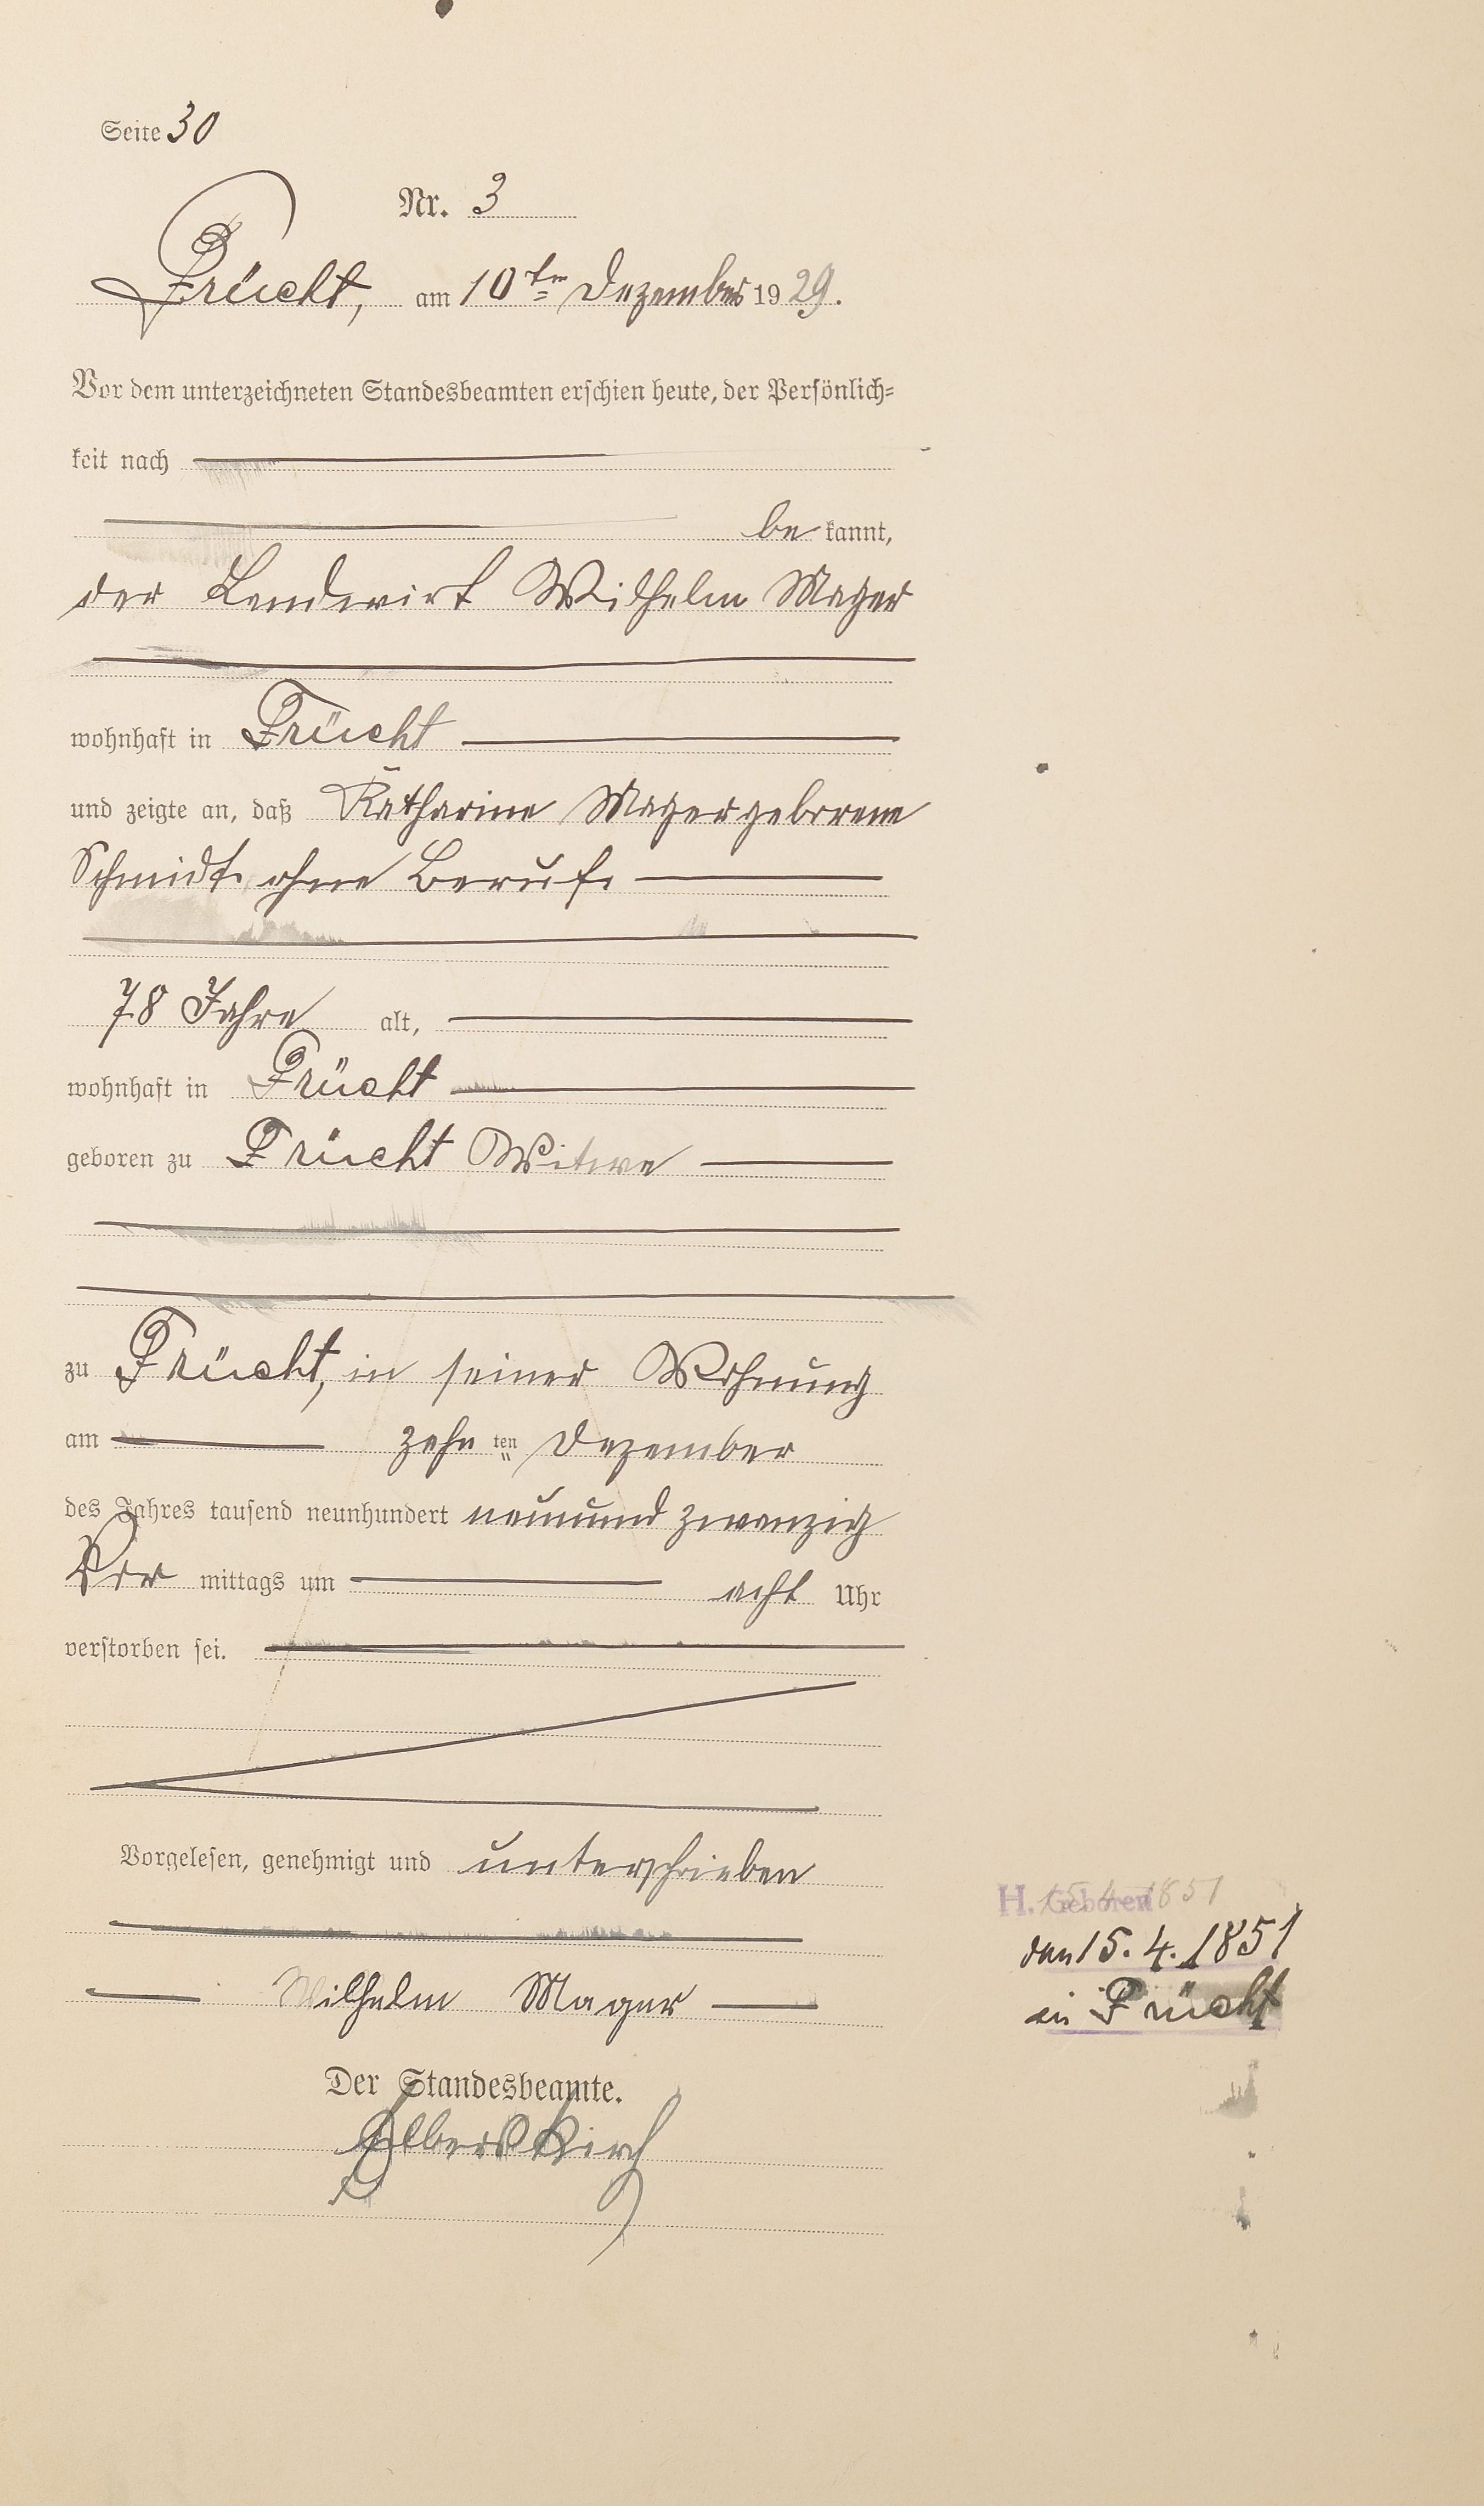 Seite 30
Nr. 3
Frücht, am 10ten Dezember 1929.
Vor dem unterzeichneten Standesbeamten erschien heute, der Persönlich-
keit nach
be kannt,
der Landwirt Wilhelm Mager
wohnhaft in Frücht
und zeigte an, daß Katharina Mager geborene
Schmidt, ohne Beruf,
78 Jahre alt,
wohnhaft in Frücht
geboren zu Frücht Witwe
zu Frücht, in seiner Wohnung
am zehn ten Dezember
des Jahres tausend neunhundert neunundzwanzig
Vor mittags um acht Uhr
verstorben sei.
Vorgelesen, genehmigt und unterschrieben
Wilhelm Mager
Der Standesbeamte.
H. Geboren 15.4.1851
den 15.4.1851
in Frücht